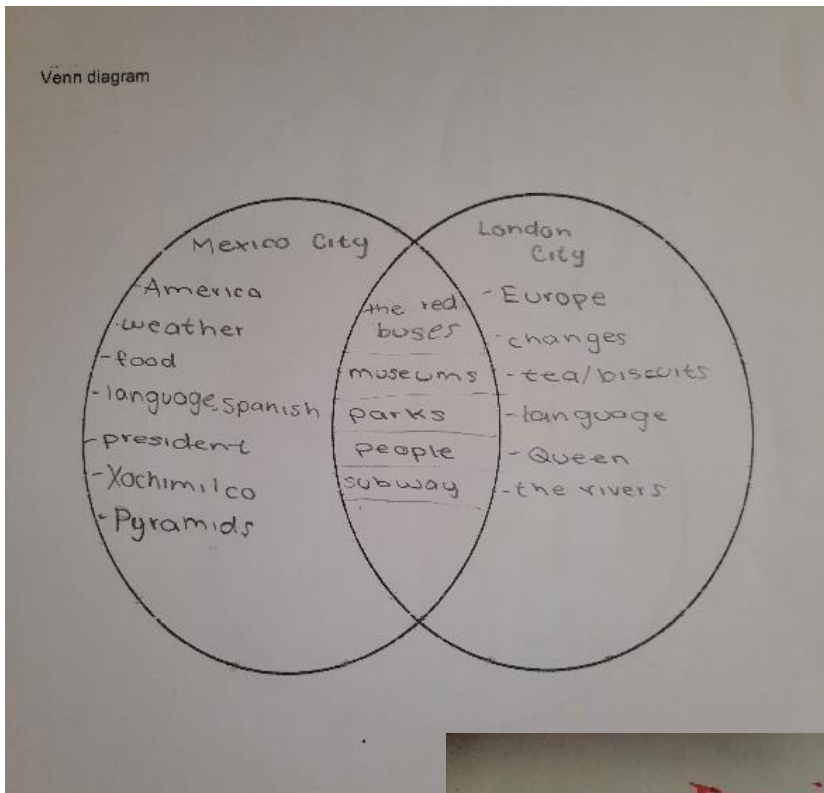 Venn diagram
Mexico City
- America
- weather
- food
- language, spanish
- president
- Xochimilco
- Pyramids
the red
buses
museums
parks
people
subway
London
City
- Europe
- changes
- tea/biscuits
- language
- Queen
- the rivers